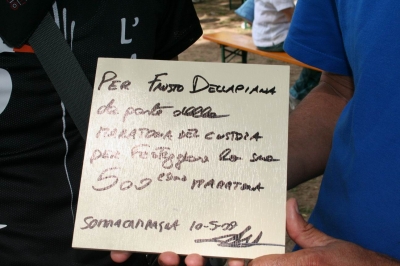 L'
PER FAUSTO DELLAPIANA
da parte della
MARATONA DEL CUSTOZA
PER Festeggiare la sua
500 esima MARATONA
SOMMACAMPAGNA 10-5-09